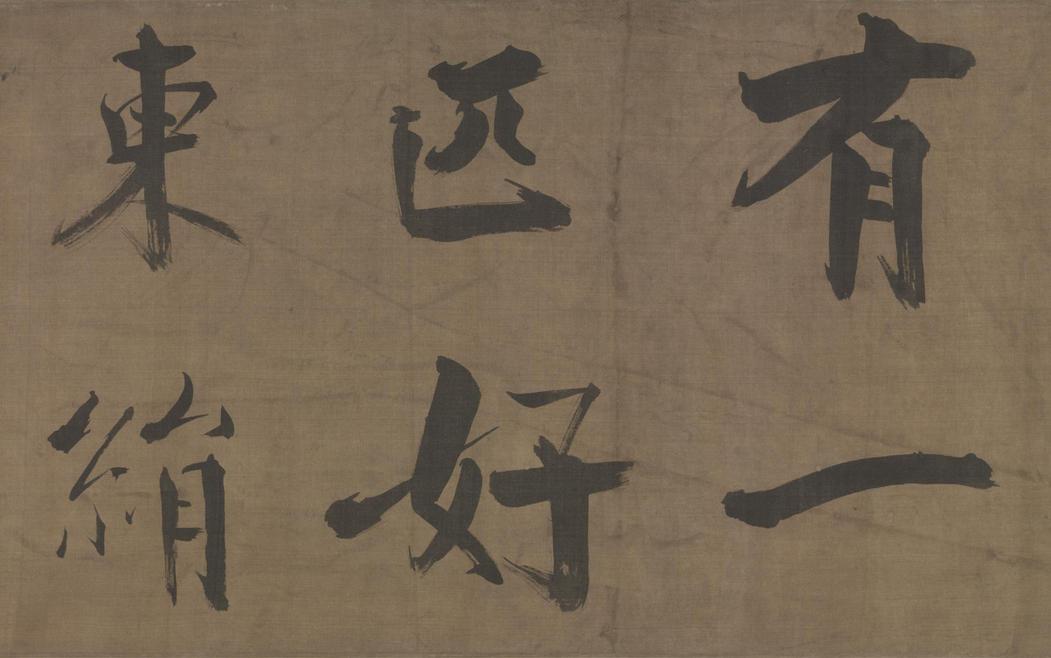 有一
匹好
東絹